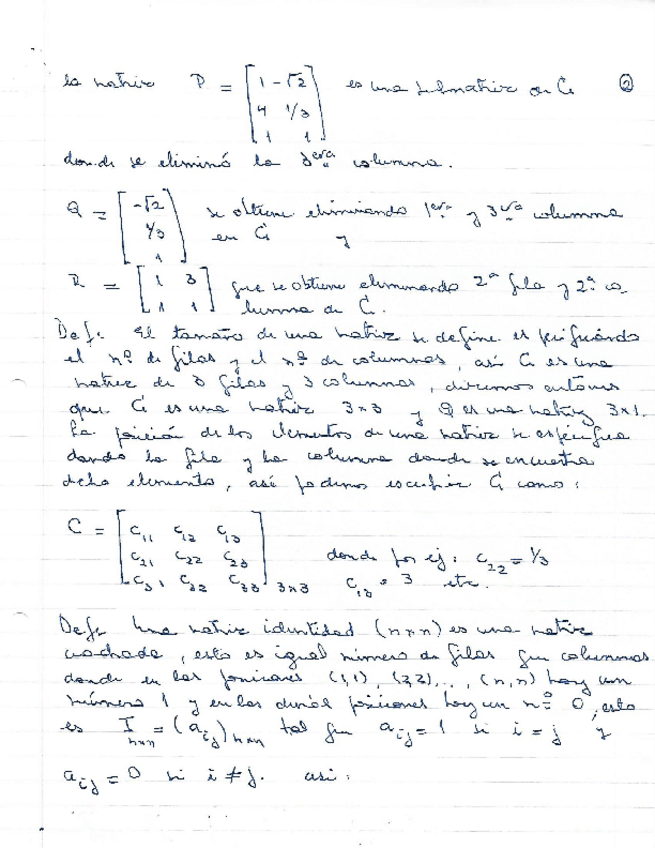 la matriz P = [1 -√2; 4 1/3; 1 1] es una submatriz de C ②
donde se eliminó la 3era columna.
Q = [-√2; 1/3; 1] se obtiene eliminando 1era y 3era columna
en C y
R = [1 3; 1 1] que se obtiene eliminando 2ª fila y 2ª co
lumna de C.
Def: El tamaño de una matriz se define especificando
el nº de filas y el nº de columnas, así C es una
matriz de 3 filas y 3 columnas, diremos entonces
que C es una matriz 3×3 y Q es una matriz 3×1.
La posición de los elementos de una matriz se especifica
dando la fila y la columna donde se encuentra
dicho elemento, así podemos escribir C como:
C = [c₁₁ c₁₂ c₁₃; c₂₁ c₂₂ c₂₃; c₃₁ c₃₂ c₃₃]3×3 donde por ej: c₂₂ = 1/3
c₁₃ = 3 etc.
Def: Una matriz identidad (n×n) es una matriz
cuadrada, esto es igual número de filas que columnas
donde en las posiciones (1,1), (2,2), .., (n,n) hay un
número 1 y en las demás posiciones hay un nº 0, esto
es I n×n = (aij) n×n tal que aij = 1 si i = j y
aij = 0 si i ≠ j. asi: